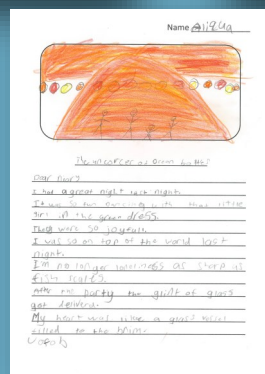 Name Aliqua
Dear Diary
I had a great night last night.
It was so fun dancing with that little
girl in the green dress.
They were so joyful.
I was so on top of the world last
night.
I'm no longer loneliness as sharp as
fish scales.
After the party the glint of glass
got
My heart was like a glass
filled to the brim.